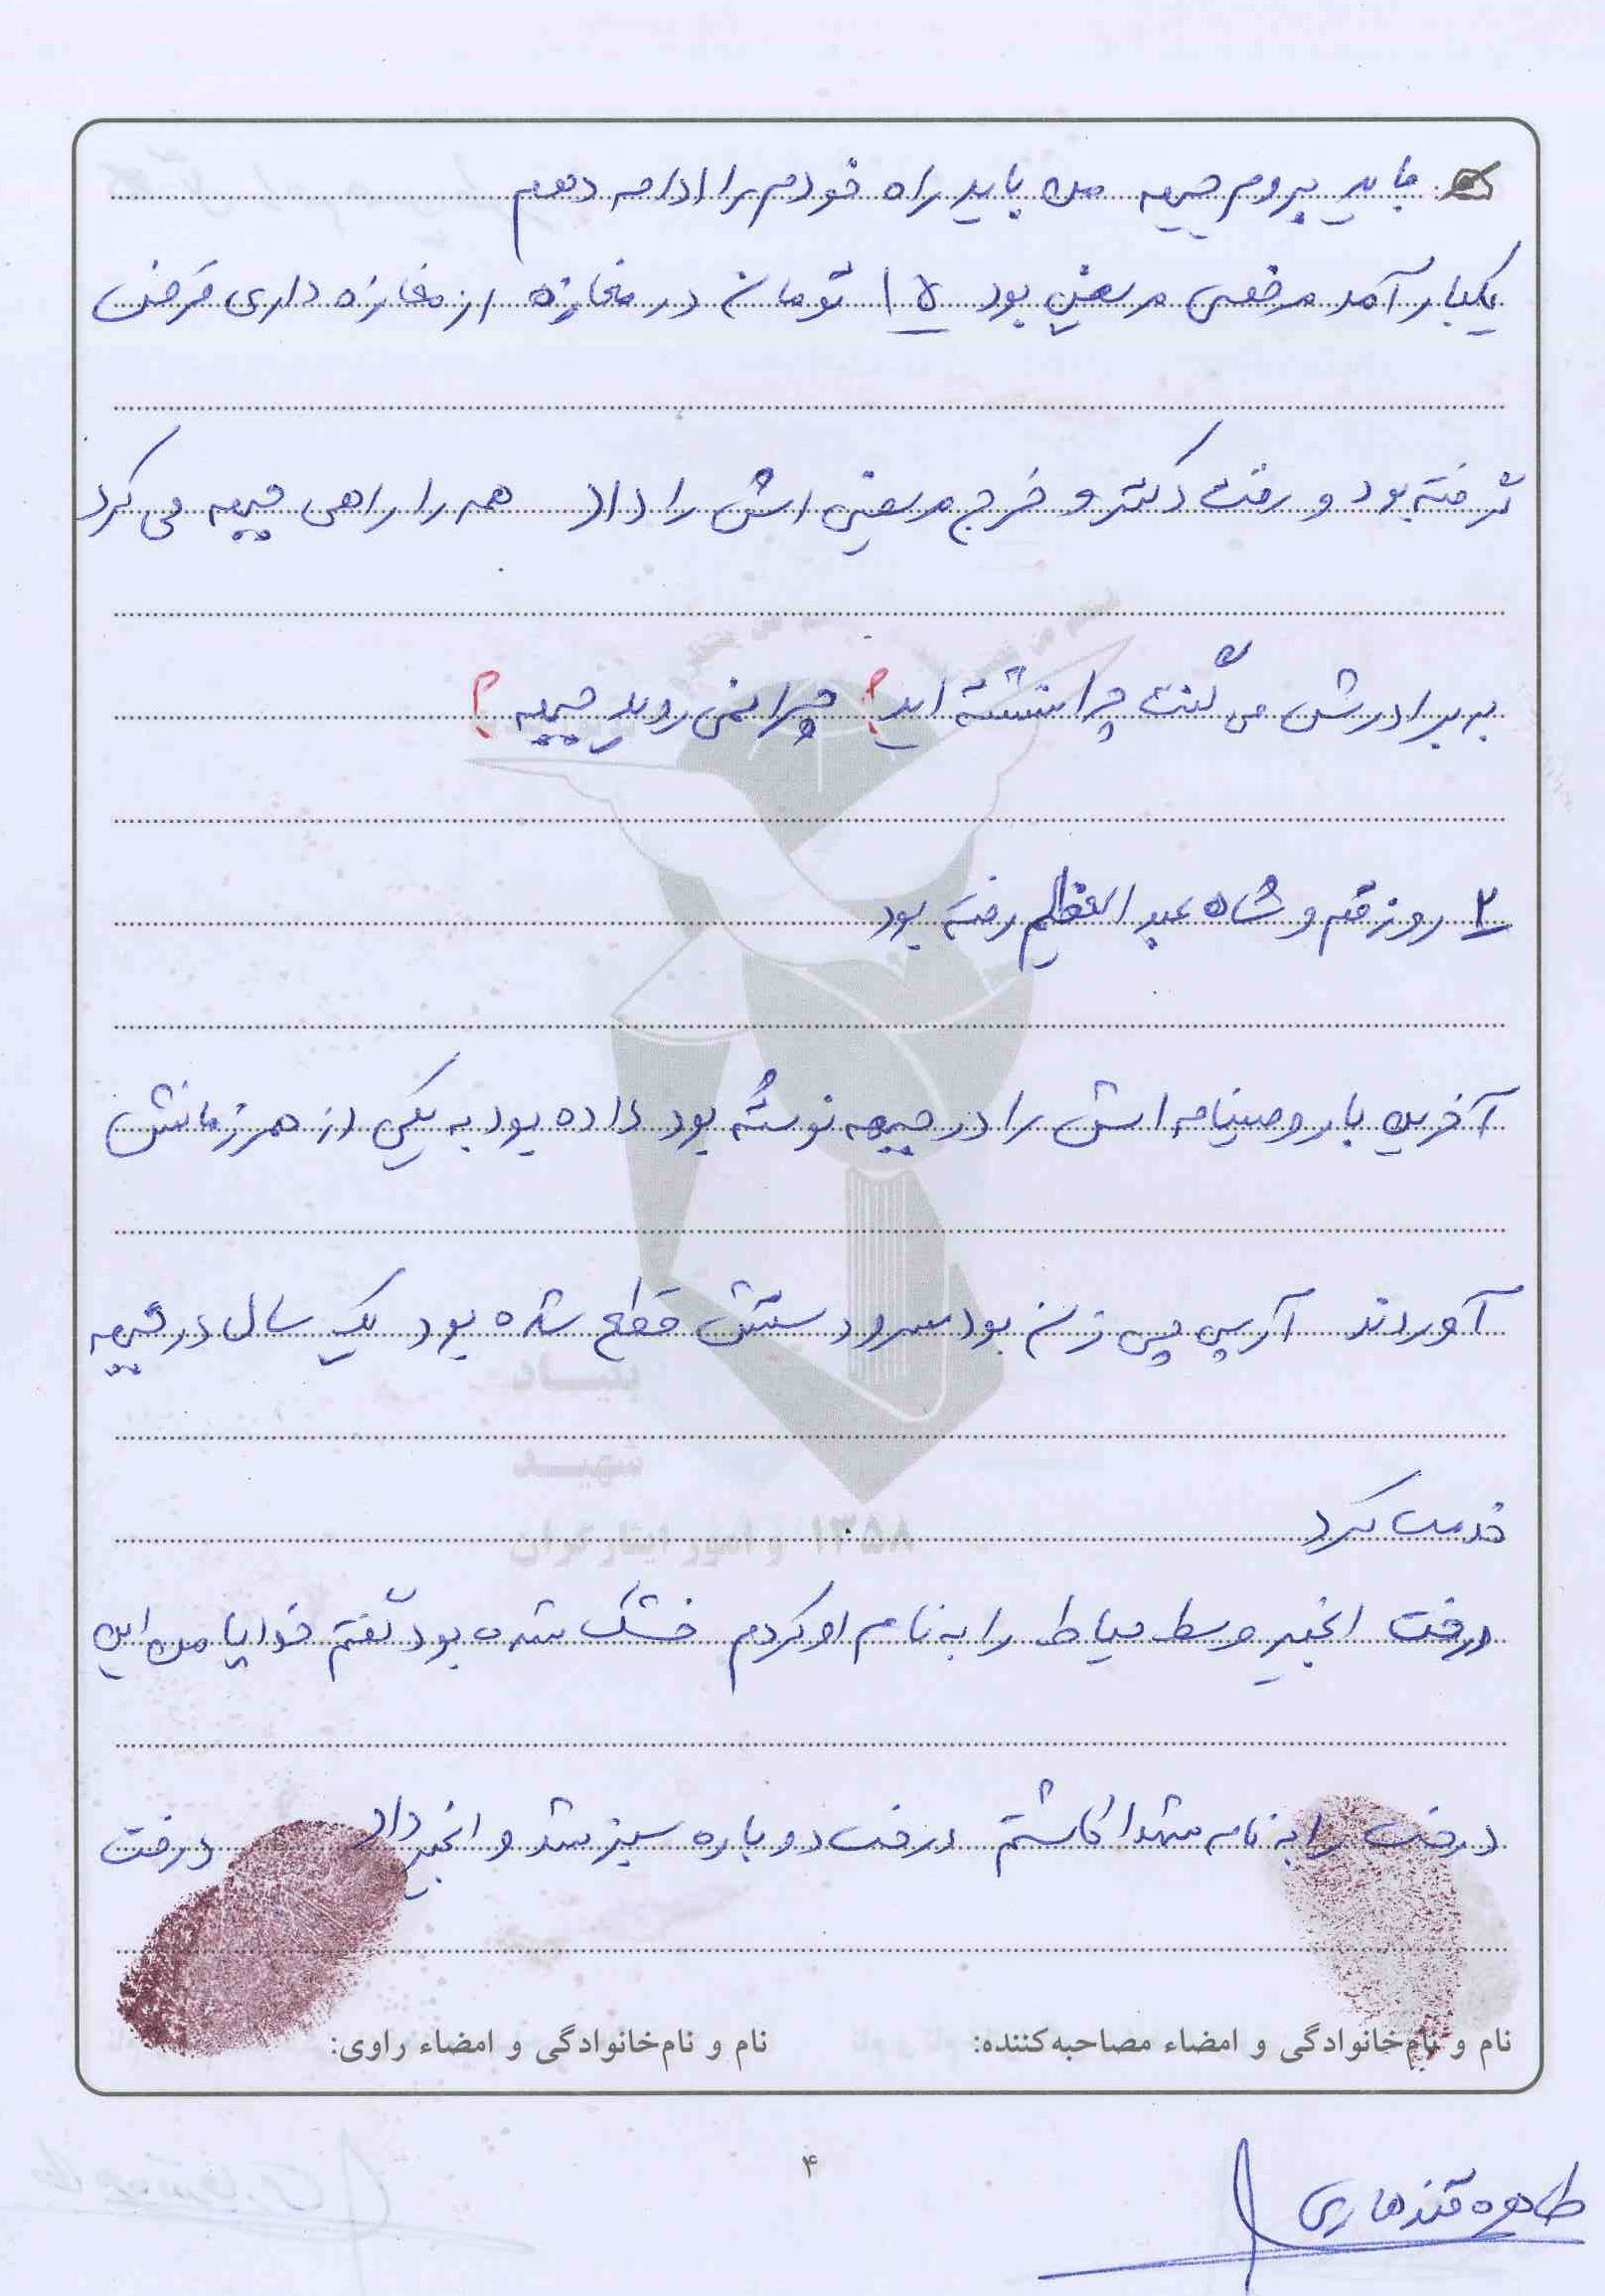 باید بروم جبهه من باید راه خودم را ادامه دهم
یکبار آمد مرخصی مریض بود ۱۵ تومان در مغازه از مغازه داری قرض
گرفته بود و رفت دکتر و خرج مریضی اش را داد همه را راهی جبهه می کرد
به برادرش می گفت چرا نشسته اید؟ چرا نمی روید جبهه؟
۲ روز قم و شاه عبدالعظیم رفته بود
آخرین بار وصیتنامه اش را در جبهه نوشته بود داده بود به یکی از همرزمانش
آوردند آرپی جی زن بود سر و دستش قطع شده بود یک سال در جبهه
خدمت کرد
درخت انجیر وسط حیاط را به نام او کردم خشک شده بود گفتم خدایا من این
درخت را به نام شهدا کاشتم درخت دوباره سبز شد و انجیر داد درخت
نام و نام‌خانوادگی و امضاء مصاحبه‌کننده: نام و نام‌خانوادگی و امضاء راوی:
۴
طاهره قندهاری
بنیاد
شهید
و امور ایثارگران ۱۳۵۸